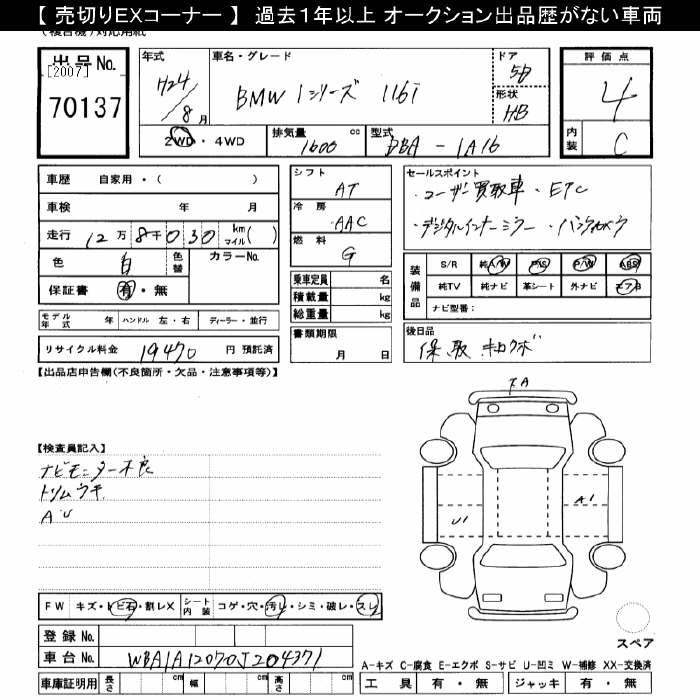 【 売切りEXコーナー 】 過去1年以上 オークション出品歴がない車両
出品No.
[2007]
70137
年式
H24/8月
車名・グレード
BMW 1シリーズ 116i
ドア
5D
形状
HB
評価点
4
内装
C
2WD・4WD
排気量
1600 cc
型式
DBA-1A16
車歴 自家用・( )
車検 年 月
走行 12万8千030 km マイル( )
色 白 色替
カラーNo.
保証書 有・無
モデル年式 年
ハンドル 左・右
ディーラー・並行
リサイクル料金 19470 円 預託済
シフト
AT
冷房
AAC
燃料
G
乗車定員 名
積載量 kg
総重量 kg
書類期限
月 日
セールスポイント
・ユーザー買取車 ・ETC
・デジタルインナーミラー ・バックカメラ
装備品
S/R 純A/W P/S P/W ABS
純TV 純ナビ 革シート 外ナビ エアB
ナビ型番:
後日品
保 取 キロクボ
【出品店申告欄(不良箇所・欠品・注意事項等)】
【検査員記入】
ナビモニター不良
トリムウキ
AU
FA
U1
A1
FW キズ・トビ石・割レX
シート内装 コゲ・穴・汚レ・シミ・破レ・スレ
登録No.
車台No. WBA1A12070J204371
車庫証明用 長さ cm 幅 cm 高さ cm
スペア
A-キズ C-腐食 E-エクボ S-サビ U-凹ミ W-補修 XX-交換済
工具 有・無 ジャッキ 有・無